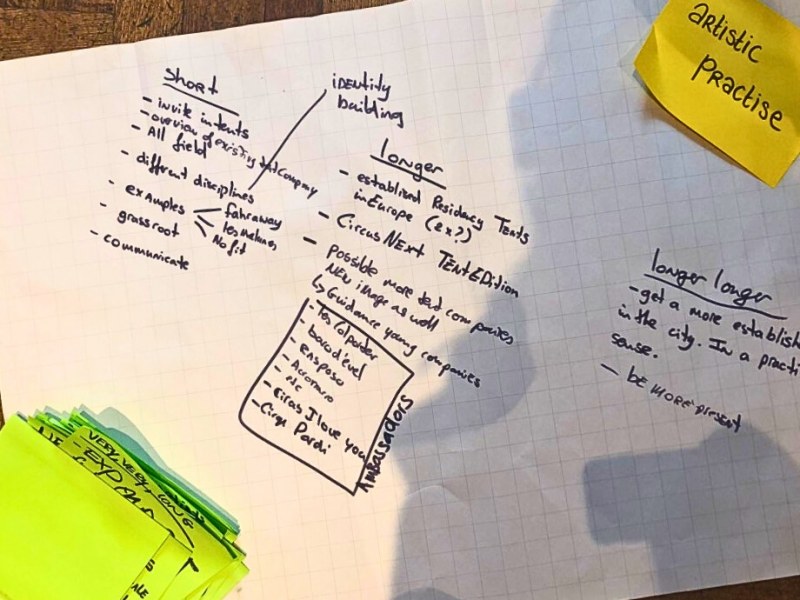 artistic
practise
Short
- invite intents
- overview of existing tent company
- All field
- different disciplines
- examples
fahraway
les malunes
No fit
- grassroot
- communicate
iDENtity
building
longer
- establised Residency Tents
in Europe (ex?)
- Circus NExt TENt EDition
- possible more tent companies
NEW image as well
↳ Guidance young companies
- baro d'evel
- etc
- Circus I love you
- Cirque Pardi
Ambassadors
longer longer
- get a more establish
in the city. In a practi
sense.
- bE MORE present
VERY, VERY LONG